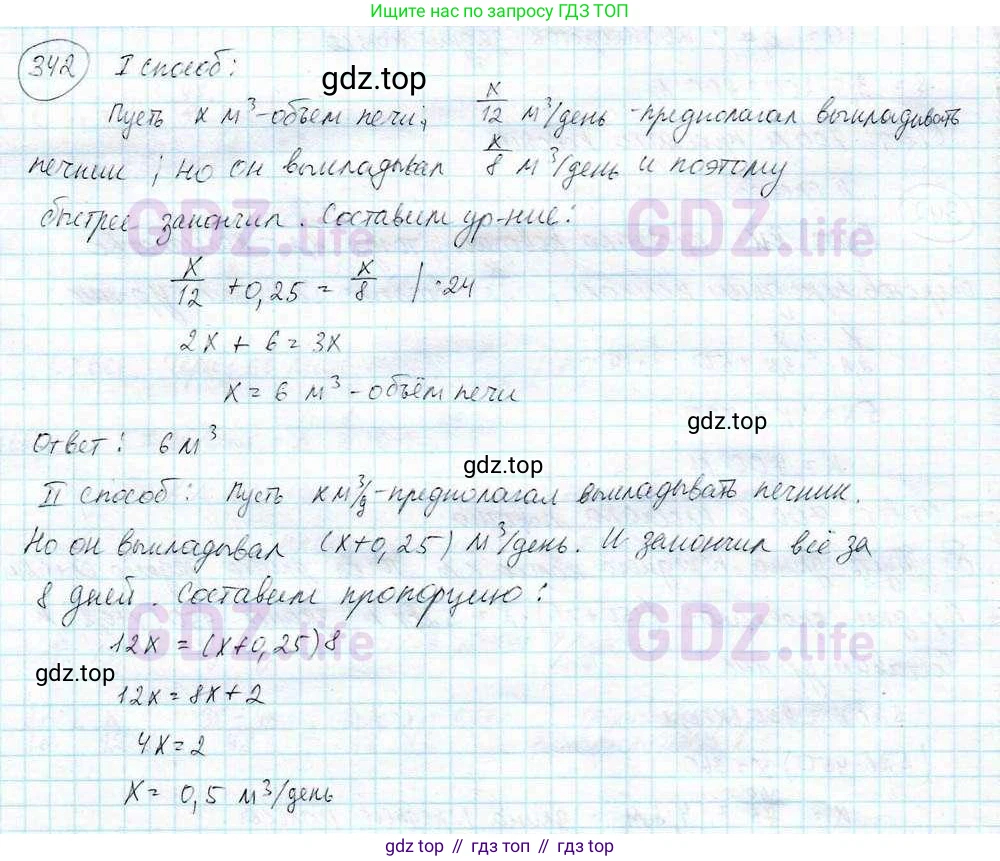 Ищите нас по запросу ГДЗ ТОП
342 I способ:
gdz.top
Пусть x м³-объем печи, x/12 м³/день -предполагал выкладывать
печник; но он выкладывал x/8 м³/день и поэтому
быстрее закончил. Составим ур-ние:
GDZ.life GDZ.life
x/12 + 0,25 = x/8 | ·24
2x + 6 = 3x
x = 6 м³ - объём печи
gdz.top
Ответ: 6 м³
gdz.top
II способ: Пусть x м³/д -предполагал выкладывать печник.
Но он выкладывал (x+0,25) м³/день. И закончил всё за
8 дней. Составим пропорцию:
GDZ.life GDZ.life
12x = (x+0,25)8
gdz.top
12x = 8x + 2
4x = 2
x = 0,5 м³/день
gdz.top
gdz.top // гдз топ // gdz top // гдз.топ